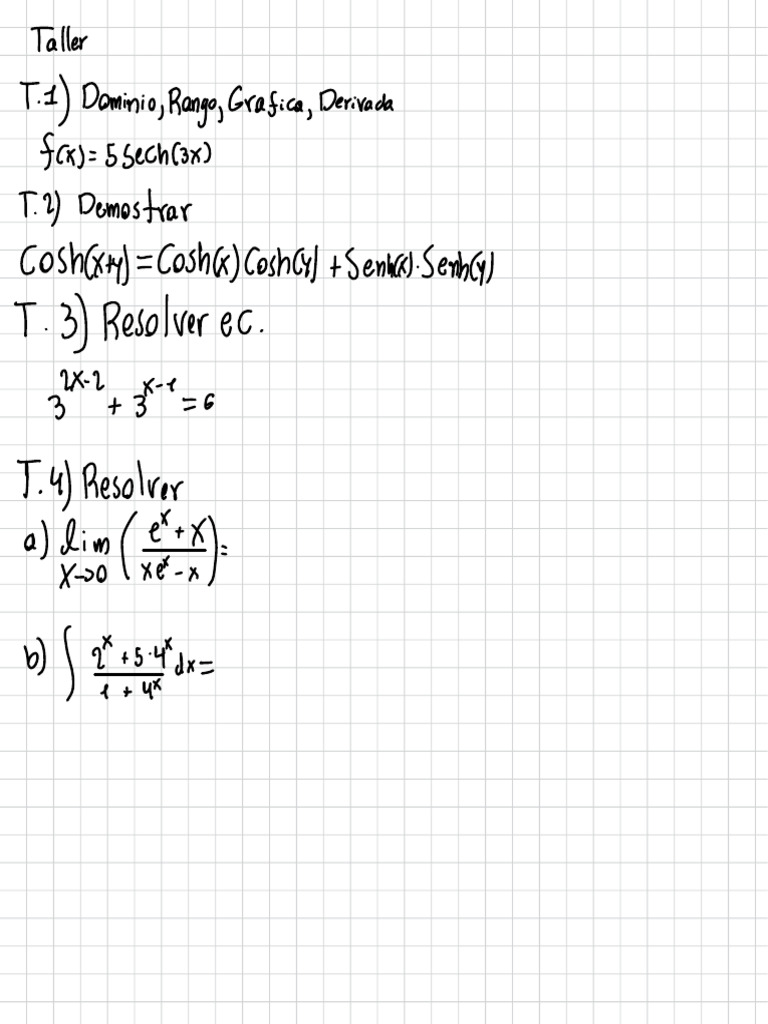 Taller
T.1) Dominio, Rango, Grafica, Derivada
f(x) = 5 Sech(3x)
T.2) Demostrar
Cosh(x+y) = Cosh(x) Cosh(y) + Senh(x) · Senh(y)
T. 3) Resolver ec.
3^(2x-2) + 3^(x-1) = 6
T.4) Resolver
a) lim x→0 ((e^x + x)/(xe^x - x)) =
b) ∫ (2^x + 5·4^x)/(1 + 4^x) dx =